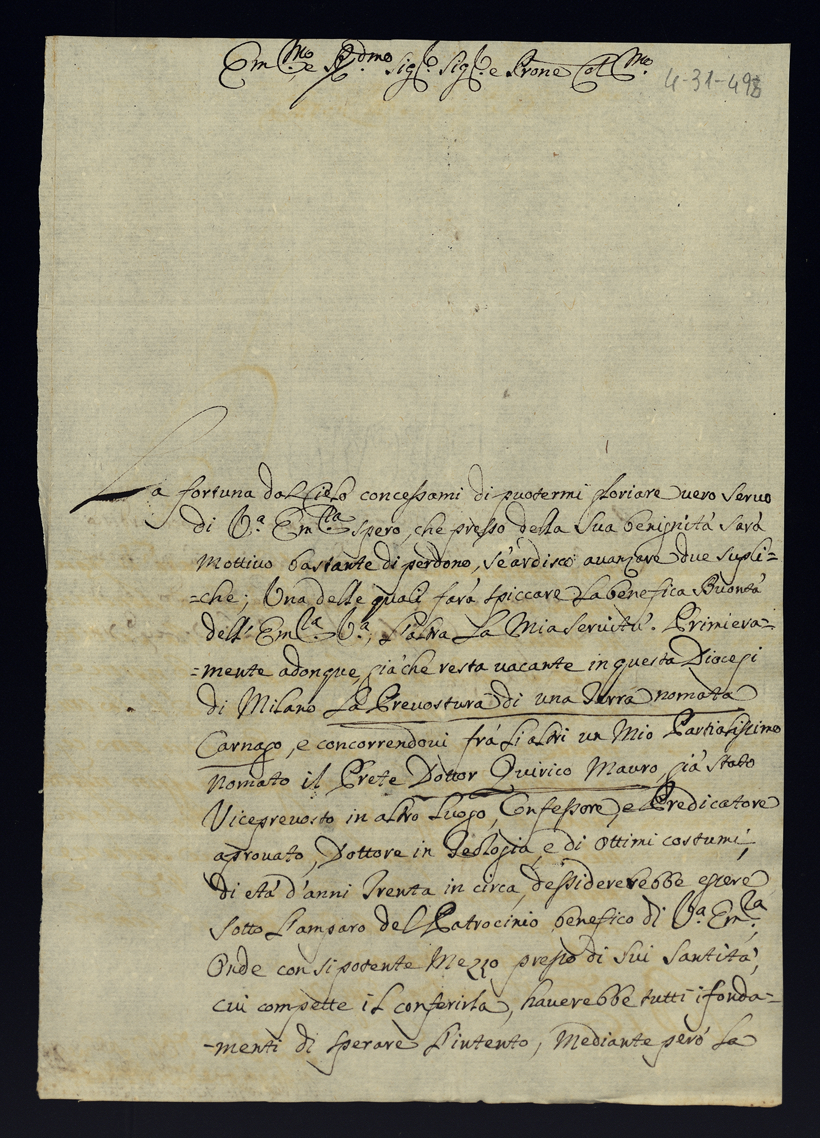 Em.mo e R.dmo Sig.r Sig.r e Prone Col.mo
4-31-498
La fortuna dal Cielo concessami di puotermi gloriare vero servo
di V.a Em.za spero, che presso della sua benignità sarà
mottivo bastante di perdono, s'è ardisco avanzare due supli=
=che; Una delle quali farà spiccare la benefica Buontà
dell'Em.za V.a, l'altra La Mia servitù. Primiera=
=mente adonque, già che resta vacante in questa Diocesi
di Milano La Prevostura di una Terra nomata
Carnago, e concorrendovi frà li altri un Mio Partialissimo
nomato il Prete Dottor Quirico Mauro, già stato
Viceprevosto in altro Luogo, Confessore, e Predicatore
aprovato, Dottore in Teologia, e di ottimi costumi,
di età d'anni Trenta in circa, dessidererebbe essere
sotto l'amparo del Patrocinio benefico di V.a Em.za,
Onde con sì potente Mezzo presso di Sui Santità,
cui compette il conferirla, haverebbe tutti i fonda=
=menti di sperare l'intento, Mediante però La